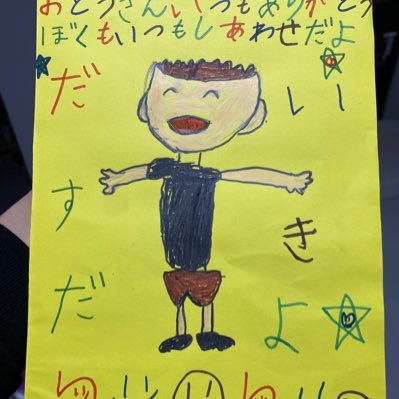 おとうさんいつもありがとう
ぼくもいつもしあわせだよ
だいー
すき
だよ